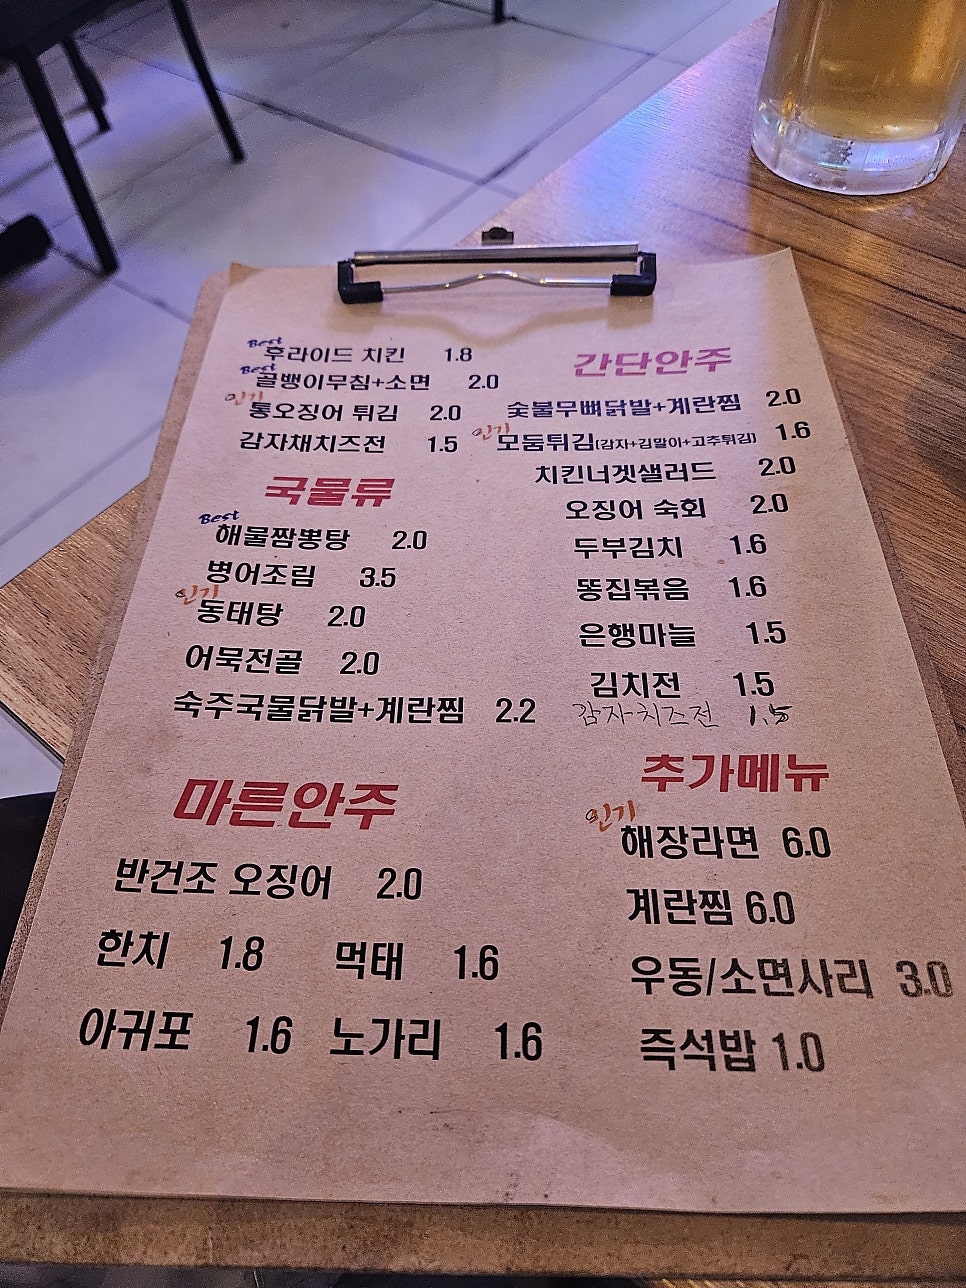 Best
후라이드 치킨 1.8
Best
골뱅이무침+소면 2.0
인기
통오징어 튀김 2.0
감자채치즈전 1.5
국물류
Best
해물짬뽕탕 2.0
병어조림 3.5
인기
동태탕 2.0
어묵전골 2.0
숙주국물닭발+계란찜 2.2
마른안주
반건조 오징어 2.0
한치 1.8 먹태 1.6
아귀포 1.6 노가리 1.6
간단안주
숯불무뼈닭발+계란찜 2.0
인기
모둠튀김(감자+김말이+고추튀김) 1.6
치킨너겟샐러드 2.0
오징어 숙회 2.0
두부김치 1.6
똥집볶음 1.6
은행마늘 1.5
김치전 1.5
감자치즈전 1.5
추가메뉴
인기
해장라면 6.0
계란찜 6.0
우동/소면사리 3.0
즉석밥 1.0